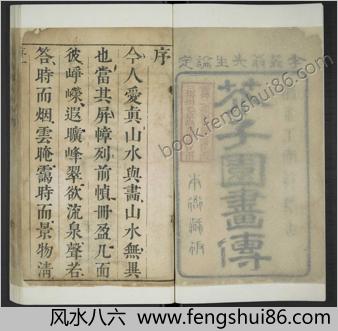 李笠翁先生論定
芥子園畫傳
本衙藏板
序
今人愛真山水與畫山水無異
也當其屏幛列前幀冊盈几面
彼崢嶸遐曠峰翠欲流泉聲若
答時而烟雲晻靄時而景物清
book.fengshui86.com
风水八六 https://www.fengshui86.com